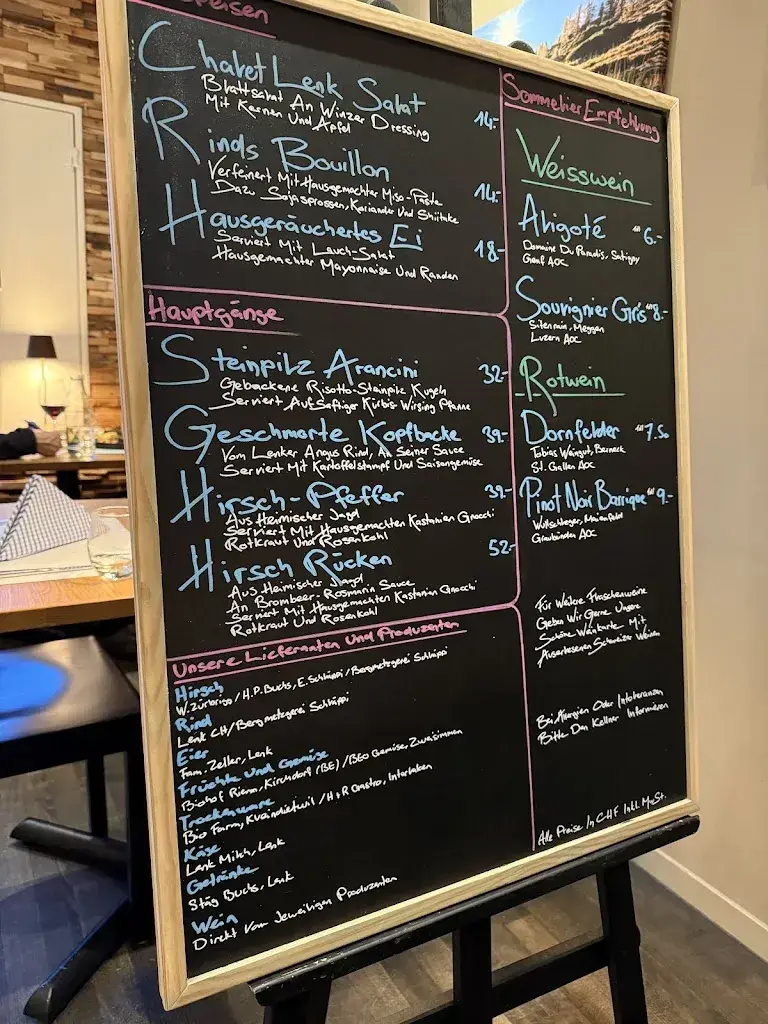 Speisen
Chalet Lenk Salat
Blattsalat An Winzer Dressing
Mit Kernen Und Apfel
14.-
Rinds Bouillon
Verfeinert Mit Hausgemachter Miso-Paste
Dazu Sojasprossen, Koriander Und Shiitake
14.-
Hausgeräuchertes Ei
Serviert Mit Lauch-Salat
Hausgemachter Mayonnaise Und Randen
18.-
Hauptgänge
Steinpilz Arancini
32.-
Gebackene Risotto-Steinpilz Kugeln
Serviert Auf Saftiger Kürbis-Wirsing Pfanne
Geschmorte Kopfbacke
39.-
Vom Lenker Angus Rind, An Seiner Sauce
Serviert Mit Kartoffelstampf Und Saisongemüse
Hirsch-Pfeffer
39.-
Aus Heimischer Jagd
Serviert Mit Hausgemachten Kastanien Gnocchi
Rotkraut Und Rosenkohl
Hirsch Rücken
52.-
Aus Heimischer Jagd
An Brombeer-Rosmarin Sauce
Serviert Mit Hausgemachten Kastanien Gnocchi
Rotkraut Und Rosenkohl
Unsere Lieferanten Und Produzenten
Hirsch
W. Zürbrigg / H.P. Buchs, E. Schläppi / Bergmetzgerei Schläppi
Rind
Lenk CH / Bergmetzgerei Schläppi
Eier
Fam. Zeller, Lenk
Früchte und Gemüse
Biohof Riem, Kirchdorf (BE) / BEO Gemüse, Zweisimmen
Trockenware
Bio Farm, Kleindietwil / H+R Gastro, Interlaken
Käse
Lenk Milch, Lenk
Getränke
Stäg Buchs, Lenk
Wein
Direkt Vom Jeweiligen Produzenten
Sommelier Empfehlung
Weisswein
Aligoté
6.-
Domaine Du Paradis, Satigny
Genf AOC
Souvignier Gris
8.-
Sitenrain, Meggen
Luzern AOC
Rotwein
Dornfelder
7.50
Tobias Weingut, Berneck
St. Gallen AOC
Pinot Noir Barrique
9.-
Wullschleger, Maienfeld
Graubünden AOC
Für Weitere Flaschenweine
Geben Wir Gerne Unsere
Schöne Weinkarte Mit
Auserlesenen Schweizer Weinen
Bei Allergien Oder Intoleranzen
Bitte Den Kellner Informieren
Alle Preise In CHF Inkl. MwSt.